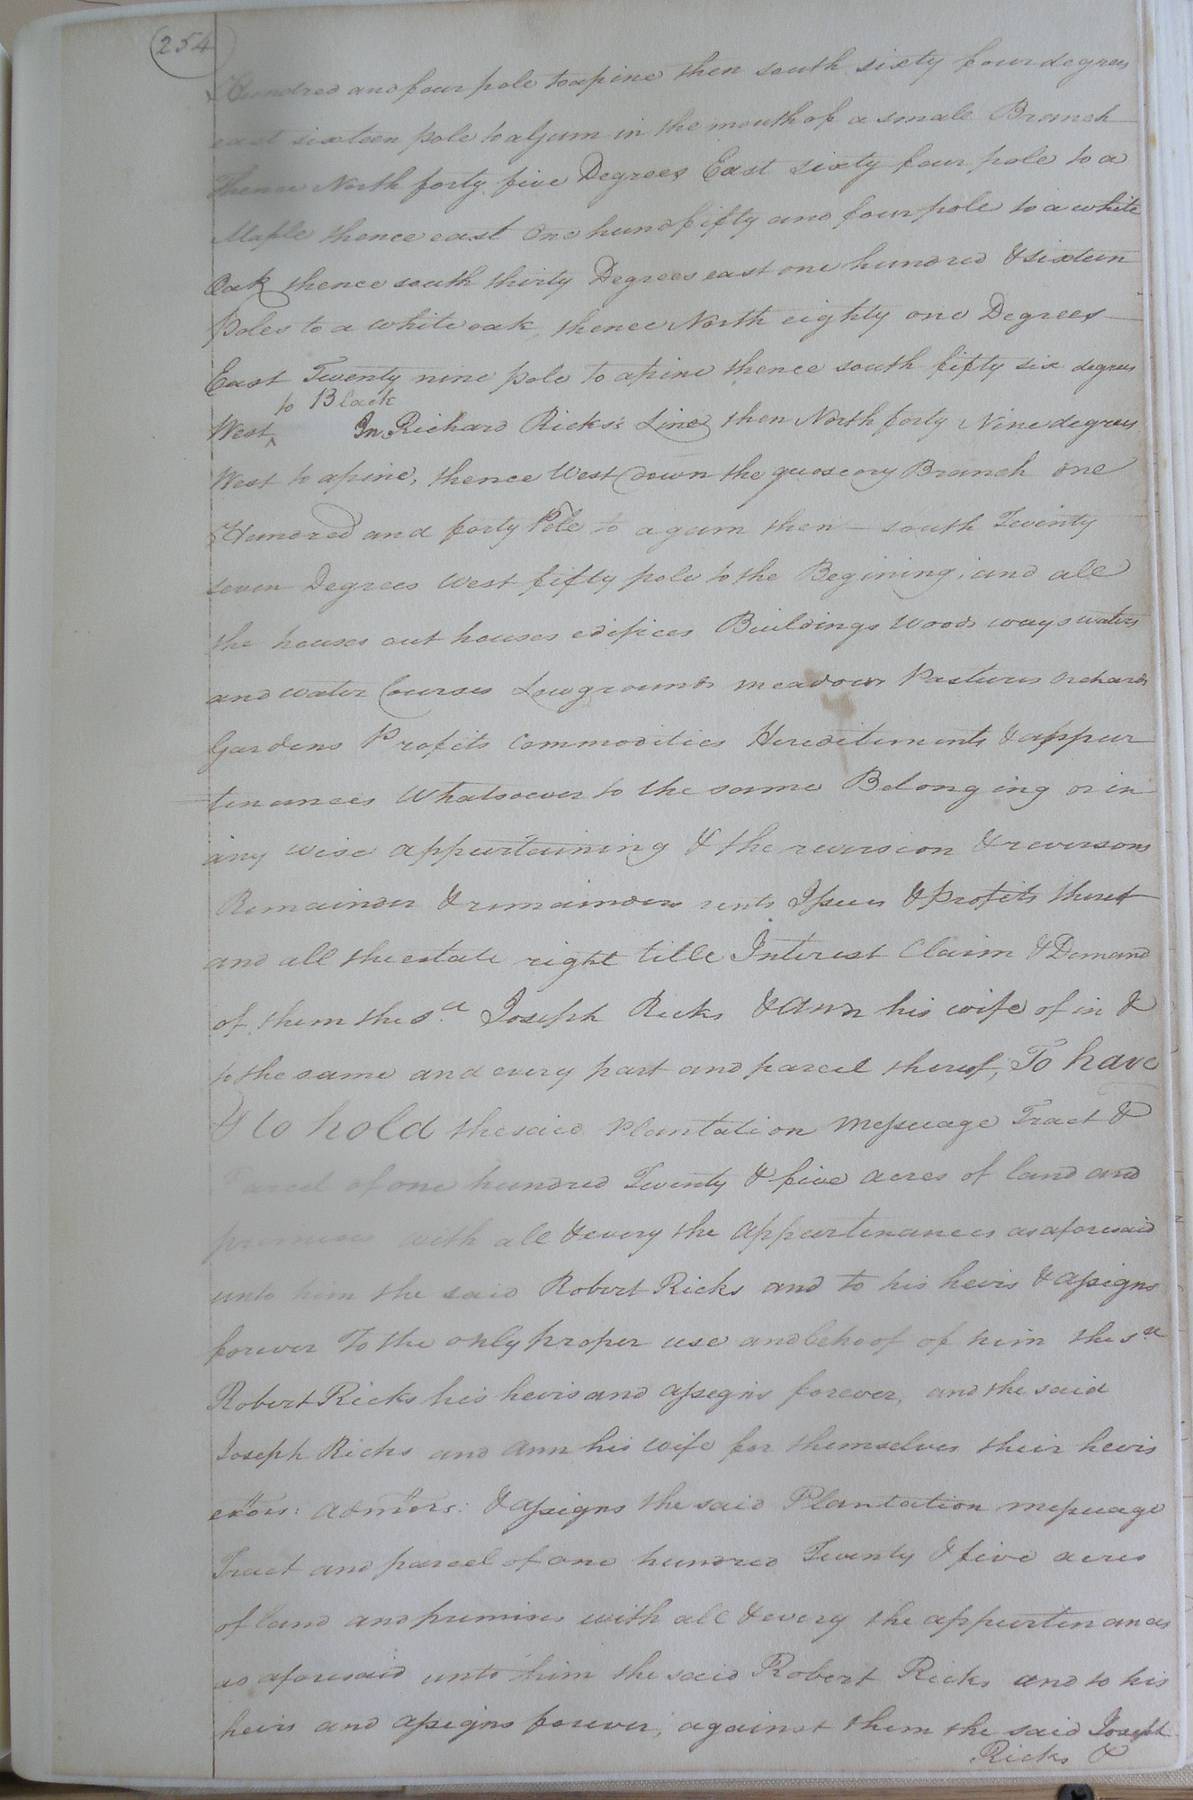 254
Hundred and four pole to a pine then south sixty four degrees
east sixteen pole to a Gum in the mouth of a small Branch
Thence North forty five Degrees East sixty four pole to a
Maple thence east One hund fifty and four pole to a white
Oak thence south thirty Degrees east one hundred & sixteen
Poles to a white oak, thence North eighty one Degrees
East Twenty nine pole to a pine thence south fifty six degrees
to Black
West ^ In Richard Ricks's Line then North forty Nine degrees
West to a pine, thence West Down the Branch one
Hundred and forty Pole to a gum then south Twenty
seven Degrees West fifty pole to the Begining; and all
the houses out houses edifices Buildings Woods ways waters
and water Courses Lowgrounds meadows Pastures Orchards
Gardens Profits Commodities Hereditiments & appur
tenances Whatsoever to the same Belonging or in
any wise appurtaining & the reversion & reversons
Remainder & remainders rents Issues & Profits thereof
and all the estate right title Interest Claim & Demand
of them the sd. Joseph Ricks & Ann his wife of in &
to the same and every part and parcel thereof, To have
& to hold the said Plantation Messuage Tract &
Parcel of one hundred Twenty & five acres of land and
premises with all & every the appurtenances as aforesaid
unto him the said Robert Ricks and to his heirs & assigns
forever To the only proper use and behoof of him the sd
Robert Ricks his heirs and assigns forever, and the said
Joseph Ricks and Ann his wife for themselves their heirs
exors: admors: & assigns the said Plantation messuage
Tract and parcel of one hundred Twenty & five acres
of land and premises with all & every the appurtenances
as aforesaid unto him the said Robert Ricks and to his
heirs and assigns forever, against them the said Joseph
Ricks &